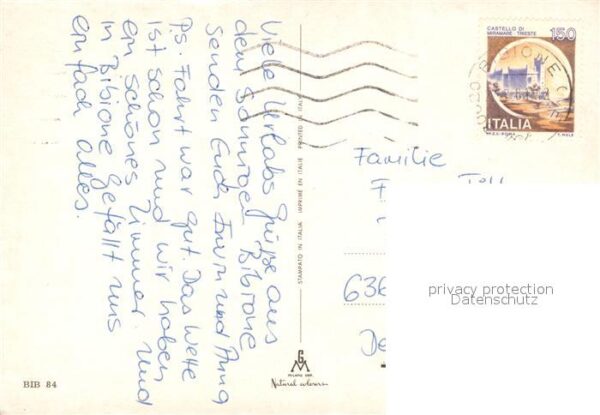 Viele Urlabs Grüße aus
dem sonnige Bibione
senden Euch Erwin und Anna
Ps. Fahrt war gut. Das Wette
ist schön und wir haben
ein schönes Zimmer. und
in Bibione gefällt uns
einfach alles.
CASTELLO DI
MIRAMARE TRIESTE
150
ITALIA
I.P.Z.S. - ROMA
BIBIONE
Familie
636
privacy protection
Datenschutz
STAMPATO IN ITALIA IMPRIMÉ EN ITALIE PRINTED IN ITALY
MILANO
Natural colours
BIB 84